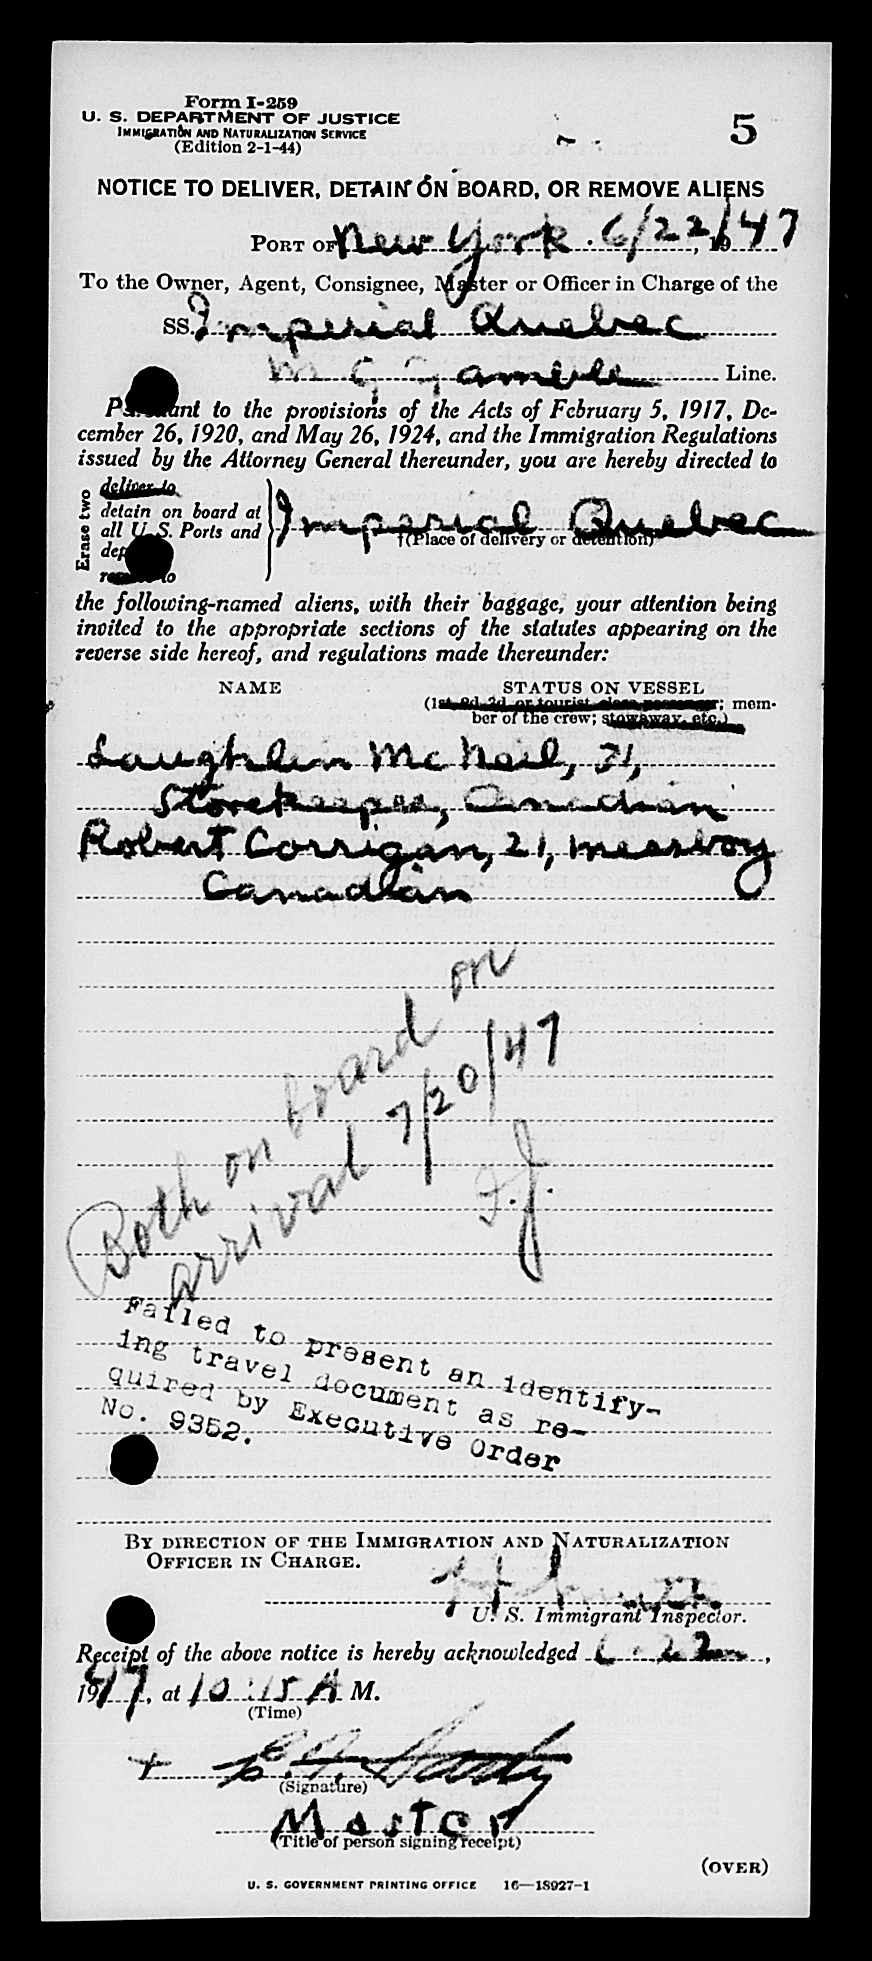 Form I-259
U. S. DEPARTMENT OF JUSTICE
IMMIGRATION AND NATURALIZATION SERVICE
(Edition 2-1-44)
5
NOTICE TO DELIVER, DETAIN ON BOARD, OR REMOVE ALIENS
PORT OF New York 6/22/, 1947
To the Owner, Agent, Consignee, Master or Officer in Charge of the
SS. Imperial Quebec
Line.
Pursuant to the provisions of the Acts of February 5, 1917, De-
cember 26, 1920, and May 26, 1924, and the Immigration Regulations
issued by the Attorney General thereunder, you are hereby directed to
Erase two
deliver to
detain on board at
all U. S. Ports and
Imperial Quebec
†(Place of delivery or detention)
the following-named aliens, with their baggage, your attention being
invited to the appropriate sections of the statutes appearing on the
reverse side hereof, and regulations made thereunder:
NAME STATUS ON VESSEL
(1st, 2d, 3d, or tourist class passenger; mem-
ber of the crew; stowaway, etc.)
Laughlin McNeil, 21,
Storekeeper, Canadian
Robert Corrigan, 21, messboy
Canadian
Both on board on
arrival 7/20/47
Failed to present an identify-
ing travel document as re-
quired by Executive Order
No. 9352.
BY DIRECTION OF THE IMMIGRATION AND NATURALIZATION
OFFICER IN CHARGE.
U. S. Immigrant Inspector.
Receipt of the above notice is hereby acknowledged 6-22,
1947, at 10:15 A M.
(Time)
(Signature)
Master
(Title of person signing receipt)
(OVER)
U. S. GOVERNMENT PRINTING OFFICE 16—18927-1